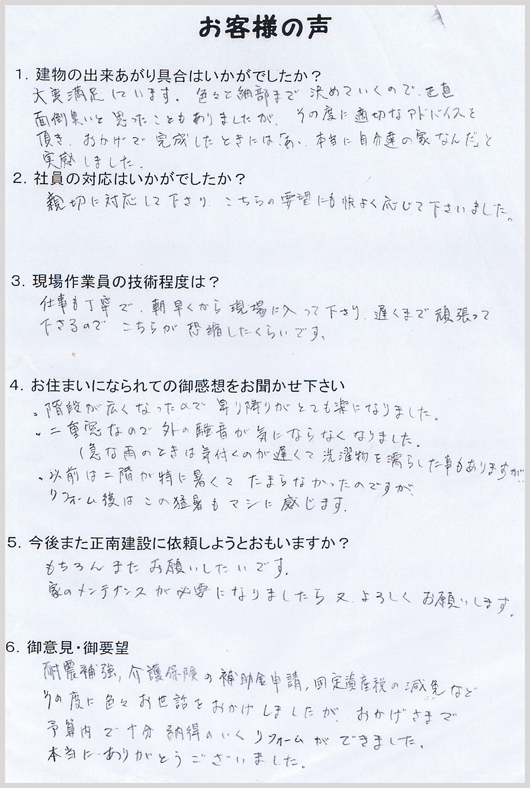 お客様の声
1．建物の出来あがり具合はいかがでしたか？
大変満足しています。色々と細部まで決めていくので、正直
面倒臭いと思ったこともありましたが、その度に適切なアドバイスを
頂き、おかげで完成したときには「あ、本当に自分達の家なんだ」と
実感しました。
2．社員の対応はいかがでしたか？
親切に対応して下さり、こちらの要望にも快よく応じて下さいました。
3．現場作業員の技術程度は？
仕事も丁寧で、朝早くから現場に入って下さり、遅くまで頑張って
下さるので こちらが恐縮したくらいです。
4．お住まいになられての御感想をお聞かせ下さい
。階段が広くなったので昇り降りがとても楽になりました。
。二重窓なので外の騒音が気にならなくなりました。
（急な雨のときは気付くのが遅くて洗濯物を濡らした事もありますが‥
。以前は二階が特に暑くて たまらなかったのですが、
リフォーム後はこの猛暑もマシに感じます。
5．今後また正南建設に依頼しようとおもいますか？
もちろんまたお願いしたいです。
家のメンテナンスが必要になりましたら又、よろしくお願いします。
6．御意見・御要望
耐震補強、介護保険の補助金申請、固定資産税の減免など
その度に色々お世話をおかけしましたが、おかげさまで
予算内で十分納得のいくリフォームができました。
本当に、ありがとうございました。